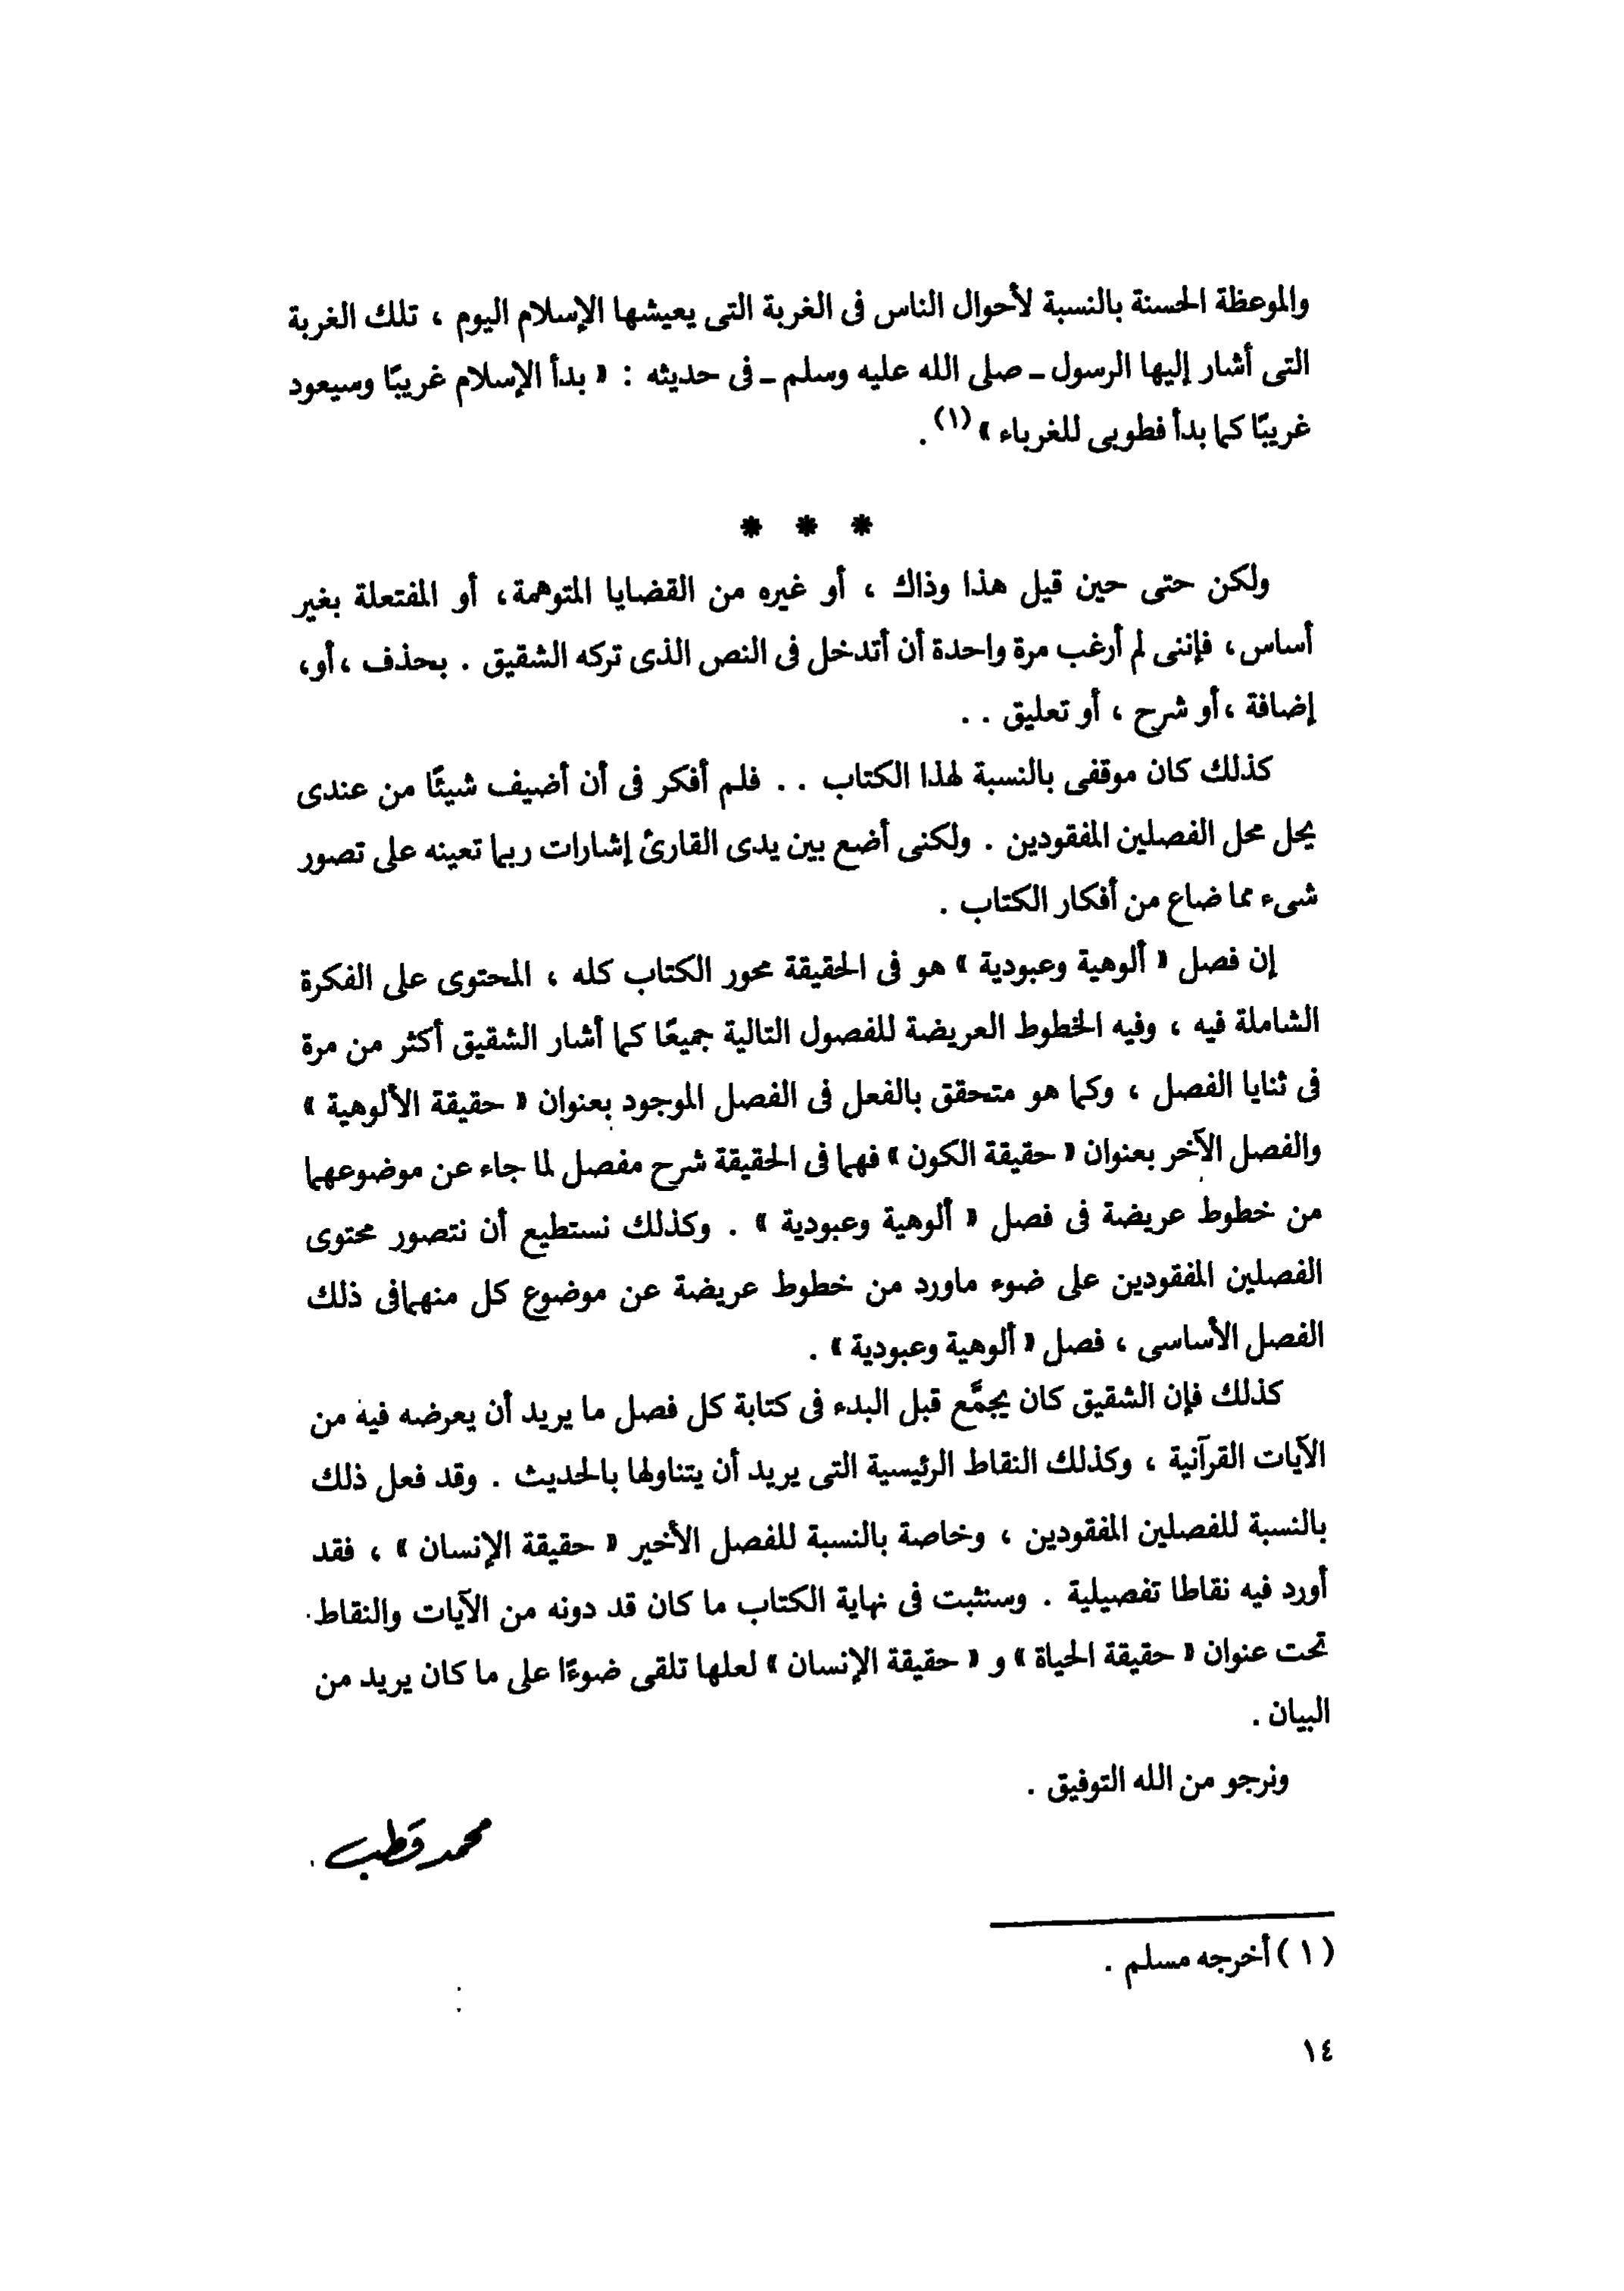 والموعظة الحسنة بالنسبة لأحوال الناس فى الغربة التى يعيشها الإسلام اليوم ، تلك الغربة
التى أشار إليها الرسول ـ صلى الله عليه وسلم ـ فى حديثه : « بدأ الإسلام غريبًا وسيعود
غريبًا كما بدأ فطوبى للغرباء » (١) .
* * *
ولكن حتى حين قيل هذا وذاك ، أو غيره من القضايا المتوهمة، أو المفتعلة بغير
أساس، فإننى لم أرغب مرة واحدة أن أتدخل فى النص الذى تركه الشقيق . بحذف ،أو،
إضافة ،أو شرح ، أو تعليق . .
كذلك كان موقفى بالنسبة لهذا الكتاب . . فلم أفكر فى أن أضيف شيئًا من عندى
يحل محل الفصلين المفقودين . ولكنى أضع بين يدى القارئ إشارات ربما تعينه على تصور
شىء مما ضاع من أفكار الكتاب .
إن فصل « ألوهية وعبودية » هو فى الحقيقة محور الكتاب كله ، المحتوى على الفكرة
الشاملة فيه ، وفيه الخطوط العريضة للفصول التالية جميعًا كما أشار الشقيق أكثر من مرة
فى ثنايا الفصل ، وكما هو متحقق بالفعل فى الفصل الموجود بعنوان « حقيقة الألوهية »
والفصل الآخر بعنوان « حقيقة الكون » فهما فى الحقيقة شرح مفصل لما جاء عن موضوعهما
من خطوط عريضة فى فصل « ألوهية وعبودية » . وكذلك نستطيع أن نتصور محتوى
الفصلين المفقودين على ضوء ماورد من خطوط عريضة عن موضوع كل منهمافى ذلك
الفصل الأساسى ، فصل « ألوهية وعبودية » .
كذلك فإن الشقيق كان يجمَّع قبل البدء فى كتابة كل فصل ما يريد أن يعرضه فيه من
الآيات القرآنية ، وكذلك النقاط الرئيسية التى يريد أن يتناولها بالحديث . وقد فعل ذلك
بالنسبة للفصلين المفقودين ، وخاصة بالنسبة للفصل الأخير « حقيقة الإنسان » ، فقد
أورد فيه نقاطا تفصيلية . وسنثبت فى نهاية الكتاب ما كان قد دونه من الآيات والنقاط
تحت عنوان « حقيقة الحياة » و « حقيقة الإنسان » لعلها تلقى ضوءًا على ما كان يريد من
البيان .
ونرجو من الله التوفيق .
محمد قطب
( ١ ) أخرجه مسلم .
١٤